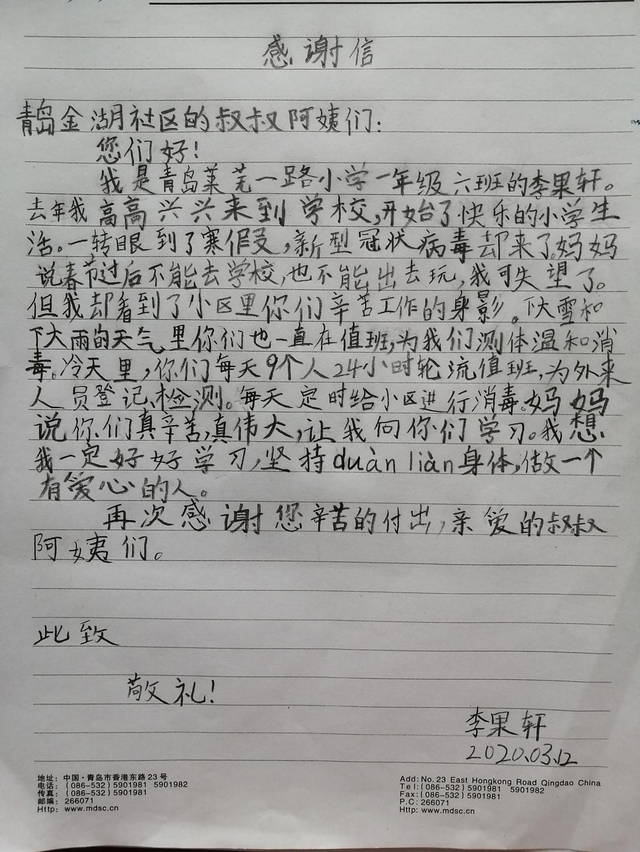 感谢信
青岛金湖社区的叔叔阿姨们:
您们好!
我是青岛莱芜一路小学一年级六班的李果轩。
去年我高高兴兴来到学校,开始了快乐的小学生
活。一转眼到了寒假,新型冠状病毒却来了。妈妈
说春节过后不能去学校,也不能出去玩,我可失望了。
但我却看到了小区里你们辛苦工作的身影。下大雪和
下大雨的天气里你们也一直在值班,为我们测体温和消
毒。冷天里,你们每天9个人24小时轮流值班,为外来
人员登记、检测。每天定时给小区进行消毒。妈妈
说你们真辛苦,真伟大,让我向你们学习。我想
我一定好好学习,坚持duàn liàn身体,做一个
有爱心的人。
再次感谢您辛苦的付出,亲爱的叔叔
阿姨们。
此致
敬礼!
李果轩
2020.03.12
地址: 中国·青岛市香港东路23号
电话: (086-532) 5901981 5901982
传真: (086-532) 5901981
邮编: 266071
Http: www.mdsc.cn
Add: No. 23 East Hongkong Road Qingdao China
Tel: (086-532) 5901981 5901982
Fax: (086-532) 5901981
P.C: 266071
Http: www.mdsc.cn